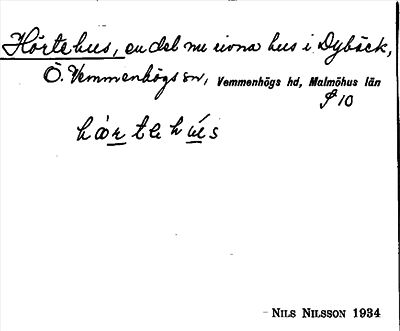 Hörtehus, en del nu rivna hus i Dybäck,
Ö. Vemmenhögs sn, Vemmenhögs hd, Malmöhus län
§ 10
hȧrtehús
NILS NILSSON 1934